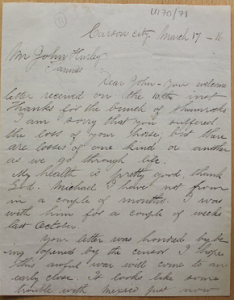 W170/71
Carson City March 17 - 16
Mr John Hurley
Dear John - Your welcome
letter received on the 10th inst
Thanks for the bunch of Shamrocks
I am sorry that you suffered
the loss of your horse, but there
are losses of one kind or another
as we go through life.
My health is pretty good thank
God. Michael I have not seen
in a couple of months. I was
with him for a couple of weeks
last October.
Your letter was handed by be-
ing opened by the censor I hope
this awful war will come to an
early close. It looks like some
trouble with Mexico just now